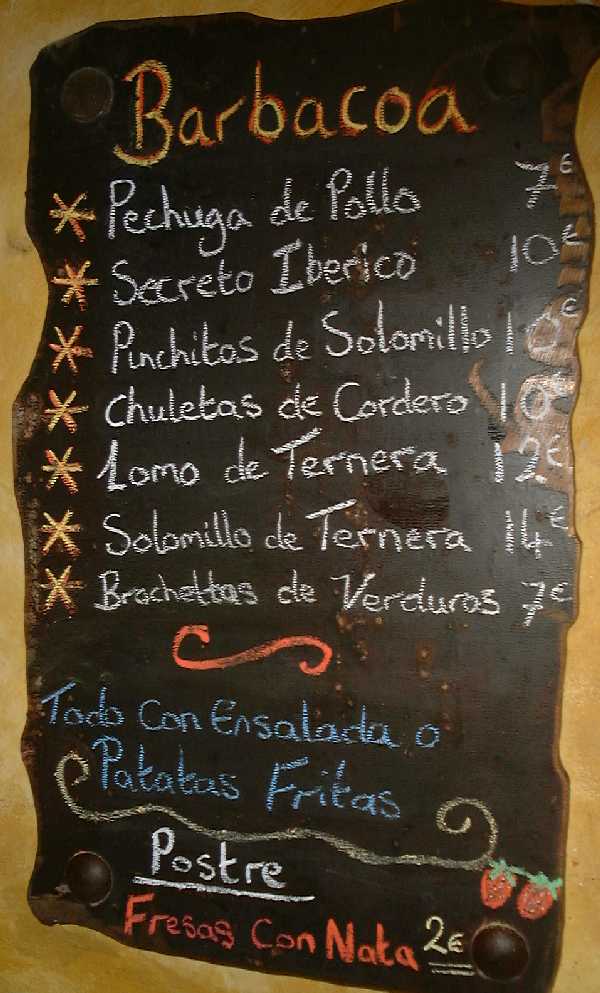 Barbacoa
Pechuga de Pollo 7€
Secreto Iberico 10€
Pinchitos de Solomillo 10€
Chuletas de Cordero 10€
Lomo de Ternera 12€
Solomillo de Ternera 14€
Brochettas de Verduras 7€
Todo Con Ensalada o
Patatas Fritas
Postre
Fresas Con Nata 2€